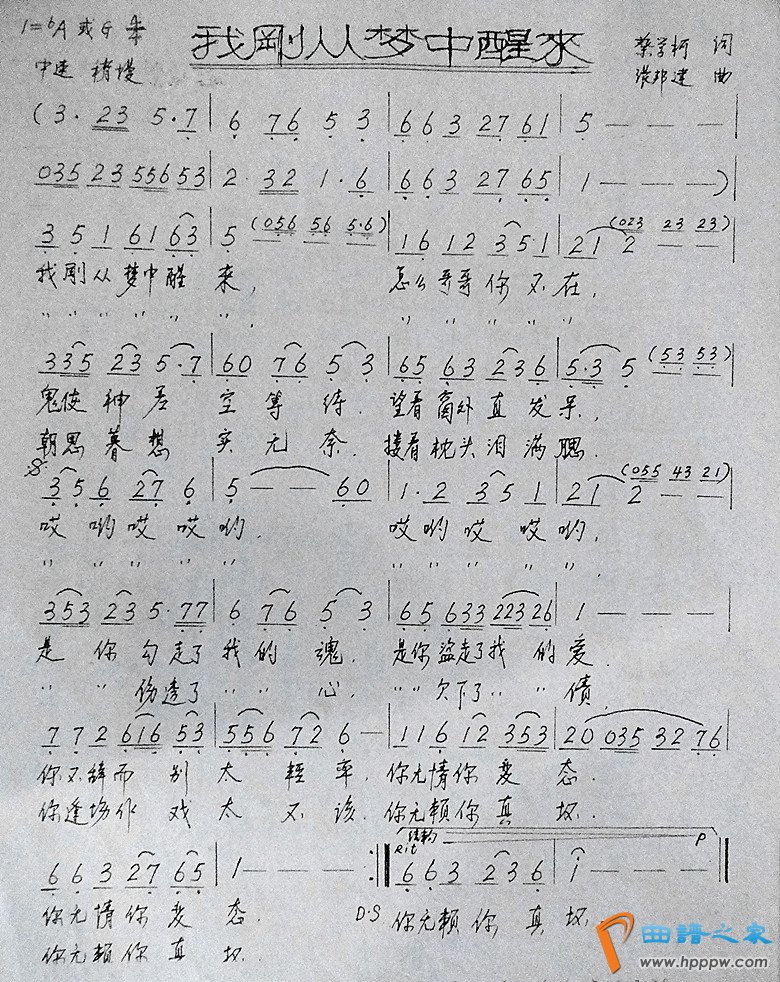 1=ᵇA 或 G 4/4
我剛从梦中醒來
蔡学柯 词
中速 稍慢
张邦建 曲
(3· 23 5·7 | 6 76 5 3 | 663 2761 | 5 — — — |
035 23 5565 53 | 2· 32 1·6 | 663 2765 | 1 — — — )
3 5 1 61 63 | 5 (056 56 5·6) | 16 12 35·1 | 21 2 (023 23 23)
我剛从梦中醒 来, 怎么哥哥你不在,
〃 〃 〃 〃 〃 〃 〃 〃 〃 〃 〃
335 23 5·7 | 60 76 5 3 | 65 63 236 | 5·3 5 (53 53)
鬼使神差 空等待. 望着窗外直发呆,
朝思暮想 实无奈. 搂着枕头泪满腮.
3 5 6 27 6 | 5 — — 60 | 1·2 35 1 | 21 2 — (055 43 21)
哎哟哎哎哟, 哎哟哎哎哟,
〃 〃 〃 〃 〃 〃 〃 〃 〃 〃
353 23 5·77 | 6 76 5 3 | 65 633 223 26 | 1 — — |
是你勾走了我的魂, 是你盗走了我的爱.
〃 〃 伤透了 〃 〃 心, 〃 〃 欠下了 〃 〃 债,
7 72 616 53 | 556 72 6 — | 116 12 353 | 20 035 32 76
你不辞而别太轻率, 你无情你变态.
你逢场作戏太不该. 你无赖你真坏.
结束句
Rit P
663 27 65 | 1 — — :‖ 663 236 | 1 — — ‖
你无情你变态. D·S 你无赖你真坏.
你无赖你真坏.
曲谱之家
www.hpppw.com